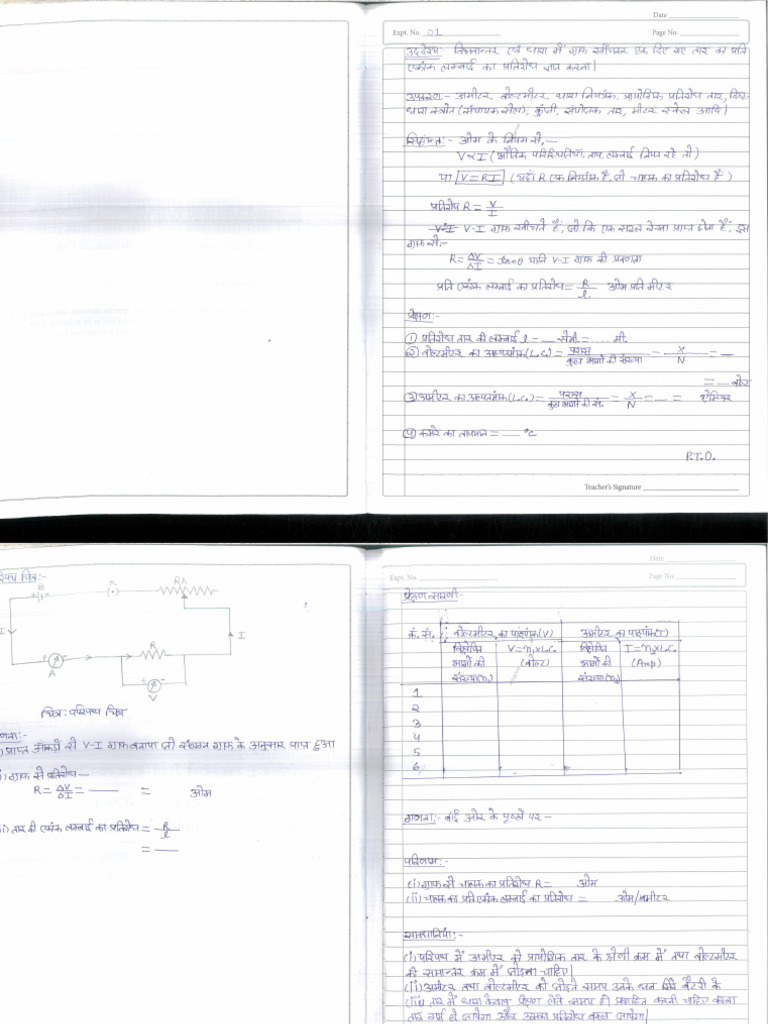 Date
Expt. No. 01
Page No.
उद्देश्य:- विभवान्तर एवं धारा में ग्राफ खींचकर एक दिए गए तार का प्रति
एकांक लम्बाई का प्रतिरोध ज्ञात करना।
उपकरण:- अमीटर, वोल्टमीटर, धारा नियंत्रक, प्रायोगिक प्रतिरोध तार, दिष्ट-
धारा स्त्रोत (संचायक सेल), कुंजी, संयोजक तार, मीटर स्केल आदि।
सिद्धान्त:- ओम के नियम से,—
V∝I (भौतिक परिस्थितियाँ, ताप, लम्बाई स्थिर रहे तो)
या V=RI (यहाँ R एक नियतांक है, जो चालक का प्रतिरोध है)
प्रतिरोध R = V/I
V-I ग्राफ खींचते हैं, जो कि एक सरल रेखा प्राप्त होता है, इस
ग्राफ से,-
R = ΔV/ΔI = tanθ यानि V-I ग्राफ की प्रवणता
प्रति एकांक लम्बाई का प्रतिरोध = R/l ओम प्रति मीटर
प्रेक्षण:-
① प्रतिरोध तार की लम्बाई l = — सेमी. = ..... मी.
② वोल्टमीटर का अल्पतमांक (L.C.) = परास/कुल भागों की संख्या = X/N = —
= — वोल्ट
③ अमीटर का अल्पतमांक (L.C.) = परास/कुल भागों की सं. = X/N = — = ऐम्पियर
④ कमरे का तापमान = — °C
P.T.O.
Teacher's Signature
परिपथ चित्र:-
B K Rh
I I
A R
A
V
V
चित्र: परिपथ चित्र
गणना:-
प्राप्त आंकडों से V-I ग्राफ बनाया जो संलग्न ग्राफ के अनुसार प्राप्त हुआ
ग्राफ से प्रतिरोध—
R = ΔV/ΔI = —— = ओम
तार की एकांक लम्बाई का प्रतिरोध = R/l
= ——
Date
Expt. No.
Page No.
प्रेक्षण सारणी-
क्र. सं. वोल्टमीटर का पाठ्यांक (V) अमीटर का पाठ्यांक (I)
विक्षेपित V=n₁xL.C. विक्षेपित I=n₂xL.C.
भागों की (वोल्ट) भागों की (Amp)
संख्या(n₁) संख्या(n₂)
1
2
3
4
5
6
गणना:- बाईं ओर के पृष्ठ पर-
परिणाम:-
(i) ग्राफ से चालक का प्रतिरोध R= ओम
(ii) चालक का प्रति एकांक लम्बाई का प्रतिरोध = ओम/मीटर
सावधानियां:-
(i) परिपथ में अमीटर को प्रायोगिक तार के श्रेणी क्रम में तथा वोल्टमीटर
को समान्तर क्रम में जोड़ना चाहिए।
(ii) अमीटर तथा वोल्टमीटर को जोड़ते समय उनके धन सिरे बैटरी के
(iii) तार में धारा केवल प्रेक्षण लेते समय ही प्रवाहित करनी चाहिए वरना
तार गर्म हो जायेगा और उसका प्रतिरोध बदल जायेगा।